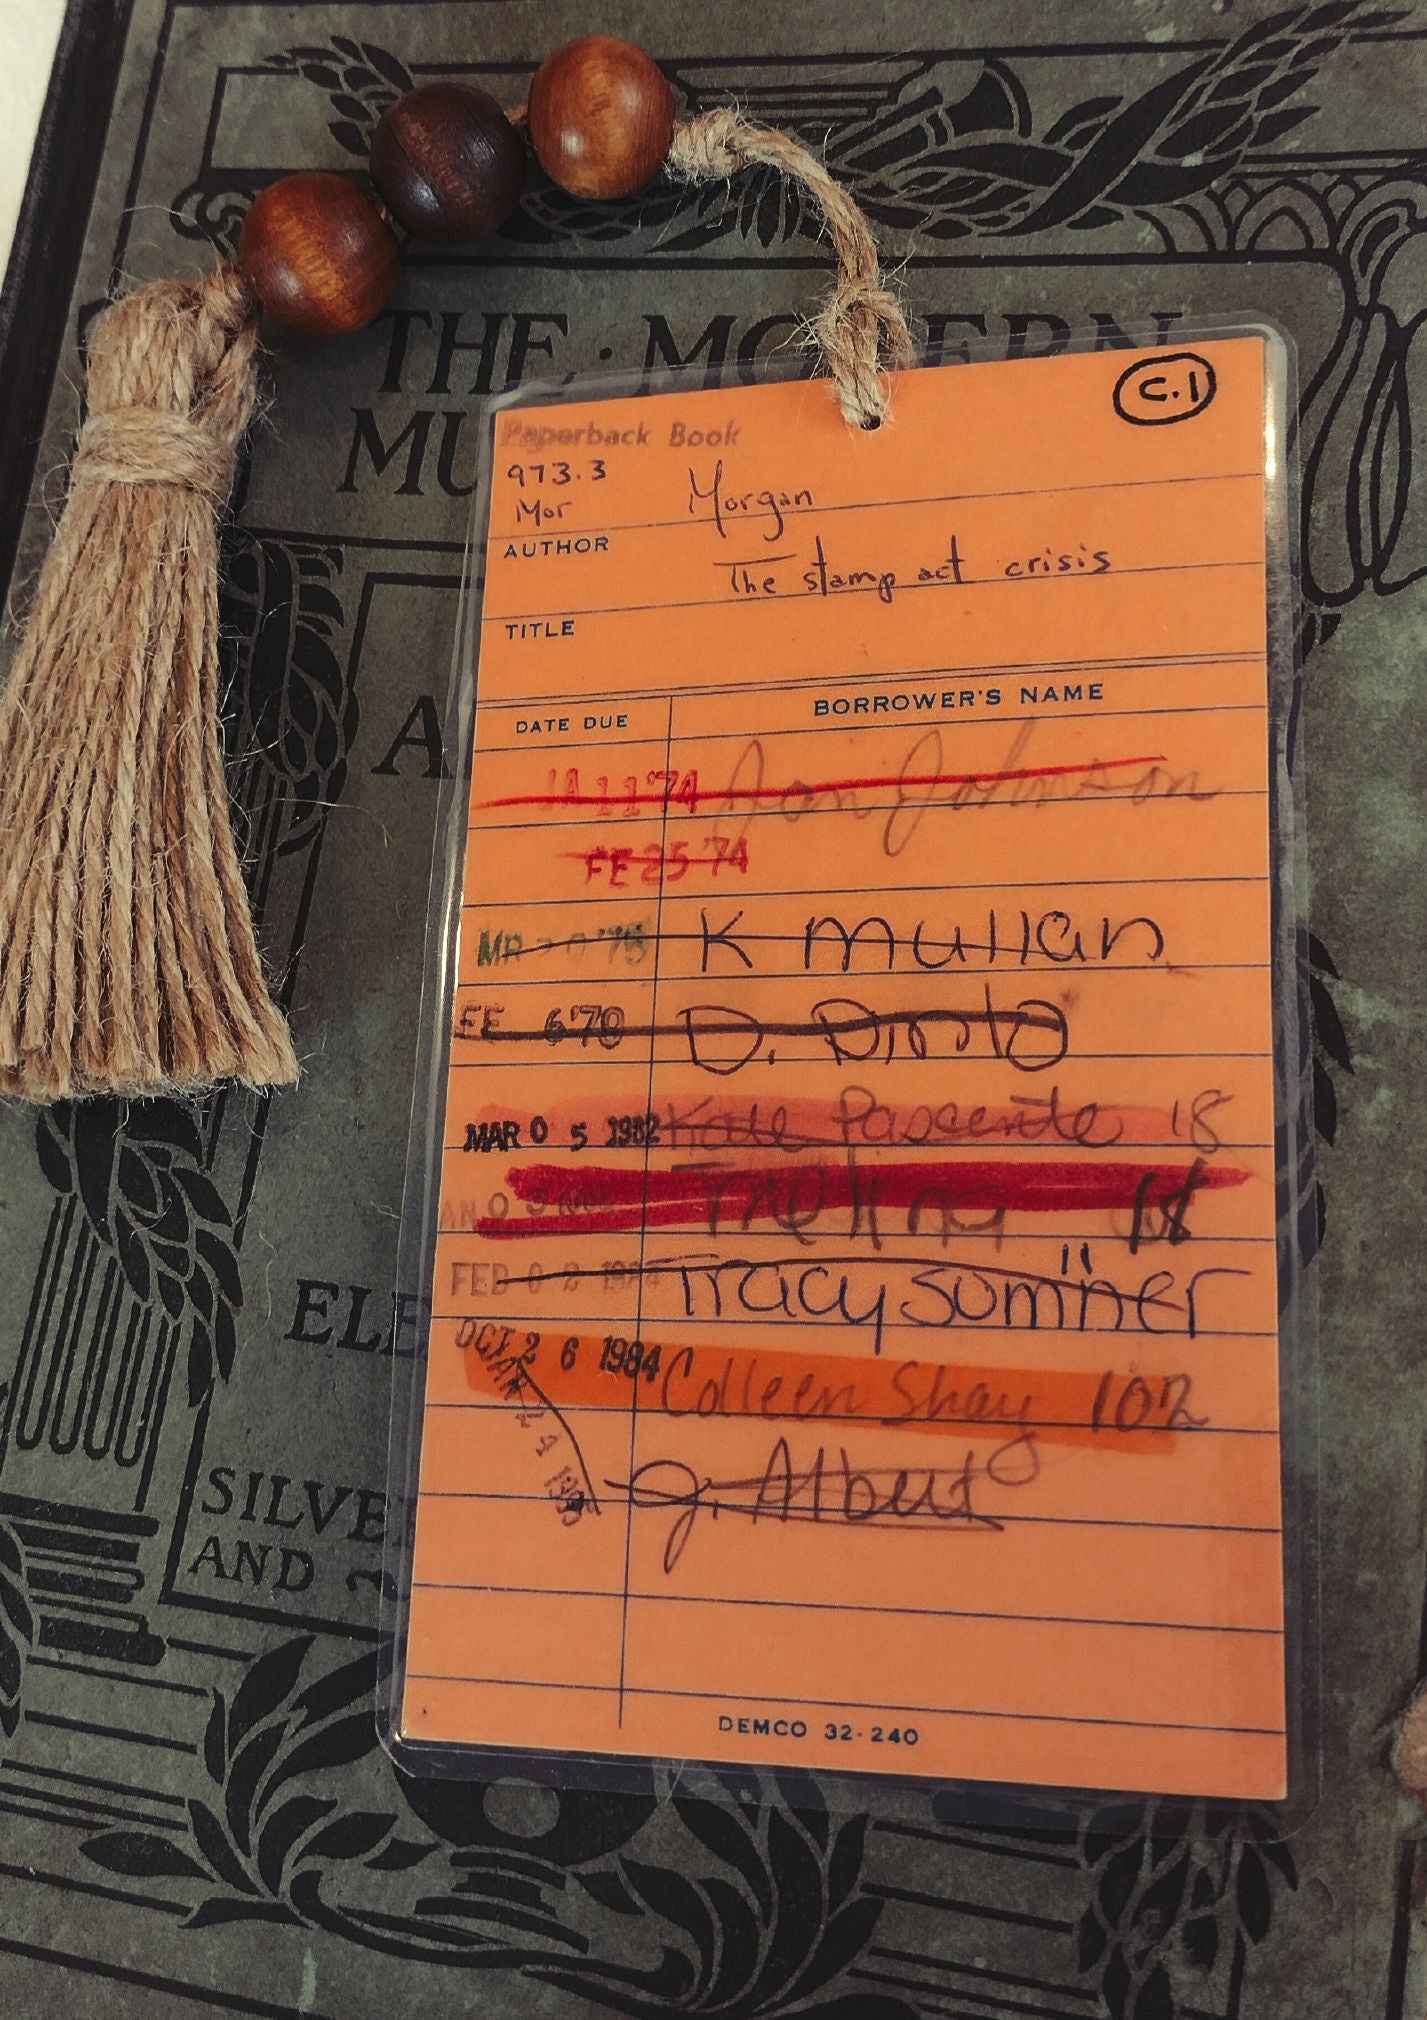 THE · MODERN
MU
A
ELE
SILVE
AND
C.1
Paperback Book
973.3
Mor
Morgan
AUTHOR
The stamp act crisis
TITLE
DATE DUE
BORROWER'S NAME
JA 11 '74 Jon Johnson
FE 25 '74
MR K Mullan
FE 6 '70 D. Dinto
MAR 0 5 1982 Kate Pascente 18
0 3 18
FEB 0 2 Tracy Sumner
OCT 2 6 1984 Colleen Shay 102
JAN 24 J. Albert
DEMCO 32-240